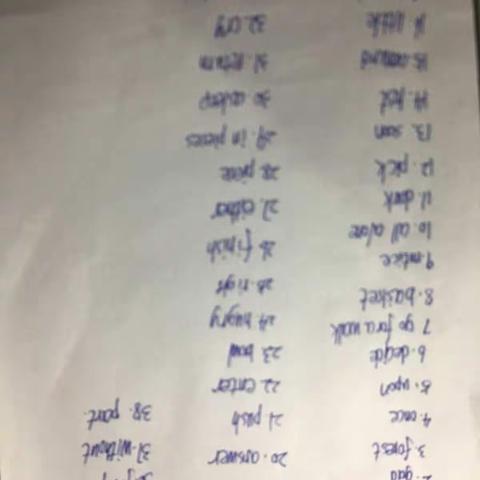 3. forest
4. once
5. upon
6. decide
7 go for a walk
8. basket
9. notice
10. all alone
11. dark
12. pick
13. soon
15. around
16. little
20. answer
21. push
22. enter
23. bowl
24 hungry
25. right
26 finish
27. either
28. piece
29. in pieces
30 asleep
31. return
32. cry
37. without
38. part.